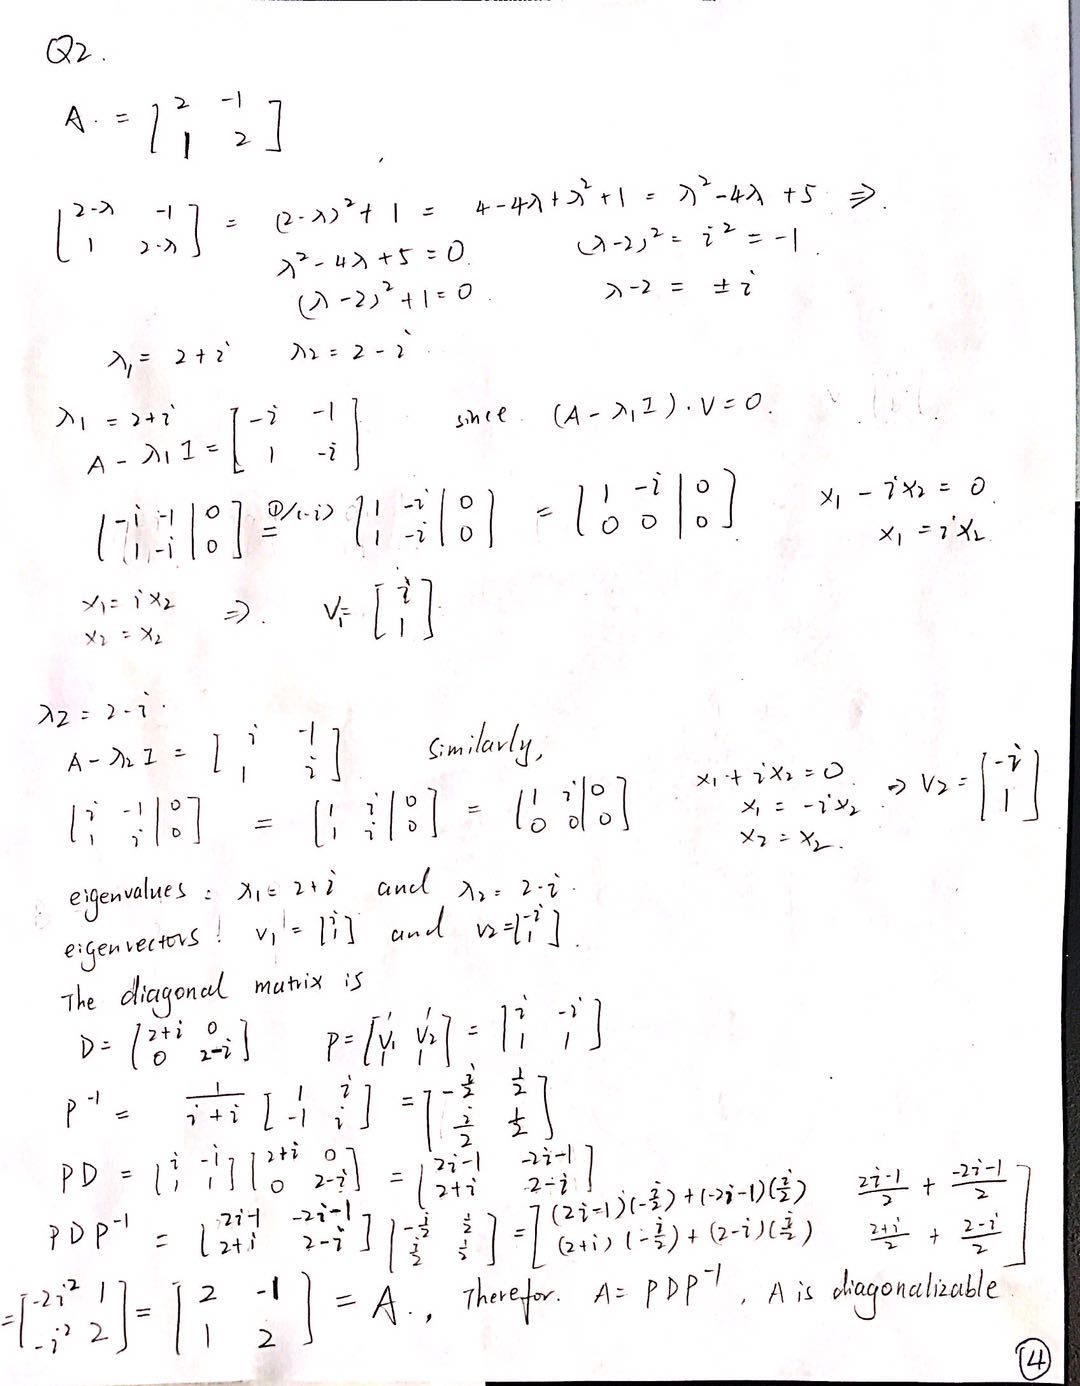 Q2.
A. = [2 -1; 1 2]
[2-λ -1; 1 2-λ] = (2-λ)²+1 = 4-4λ+λ²+1 = λ²-4λ+5 ⇒.
λ²-4λ+5=0. (λ-2)² = i² = -1.
(λ-2)²+1=0. λ-2 = ±i
λ₁ = 2+i λ2 = 2-i.
λ1 = 2+i
A-λ1 I = [-i -1; 1 -i] since. (A-λ1 I)·V=0.
[-i -1 | 0; 1 -i | 0] =^{①/(-i)} [1 -i | 0; 1 -i | 0] = [1 -i | 0; 0 0 | 0] x₁ - ix2 = 0.
x₁ = ix2.
x1 = ix2
x2 = x2 ⇒. V₁= [i; 1]
λ2 = 2-i.
A-λ2 I = [i -1; 1 i] Similarly,
[i -1 | 0; 1 i | 0] = [1 i | 0; 1 i | 0] = [1 i | 0; 0 0 | 0] x1+ix2=0. ⇒ V2 = [-i; 1]
x1 = -ix2
x2 = x2.
eigenvalues : λ1 = 2+i and λ2 = 2-i.
eigenvectors : V1 = [i; 1] and V2 = [-i; 1].
The diagonal matrix is
D = [2+i 0; 0 2-i] P = [V1 V2] = [i -i; 1 1]
P⁻¹ = 1/(i+i) [1 i; -1 i] = [-i/2 1/2; i/2 1/2]
PD = [i -i; 1 1] [2+i 0; 0 2-i] = [2i-1 -2i-1; 2+i 2-i]
PDP⁻¹ = [2i-1 -2i-1; 2+i 2-i] [-i/2 1/2; i/2 1/2] = [(2i-1)(-i/2)+(-2i-1)(i/2) (2i-1)/2 + (-2i-1)/2; (2+i)(-i/2)+(2-i)(i/2) (2+i)/2 + (2-i)/2]
= [-2i² 1; -i² 2] = [2 -1; 1 2] = A., Therefor. A= PDP⁻¹, A is diagonalizable.
④